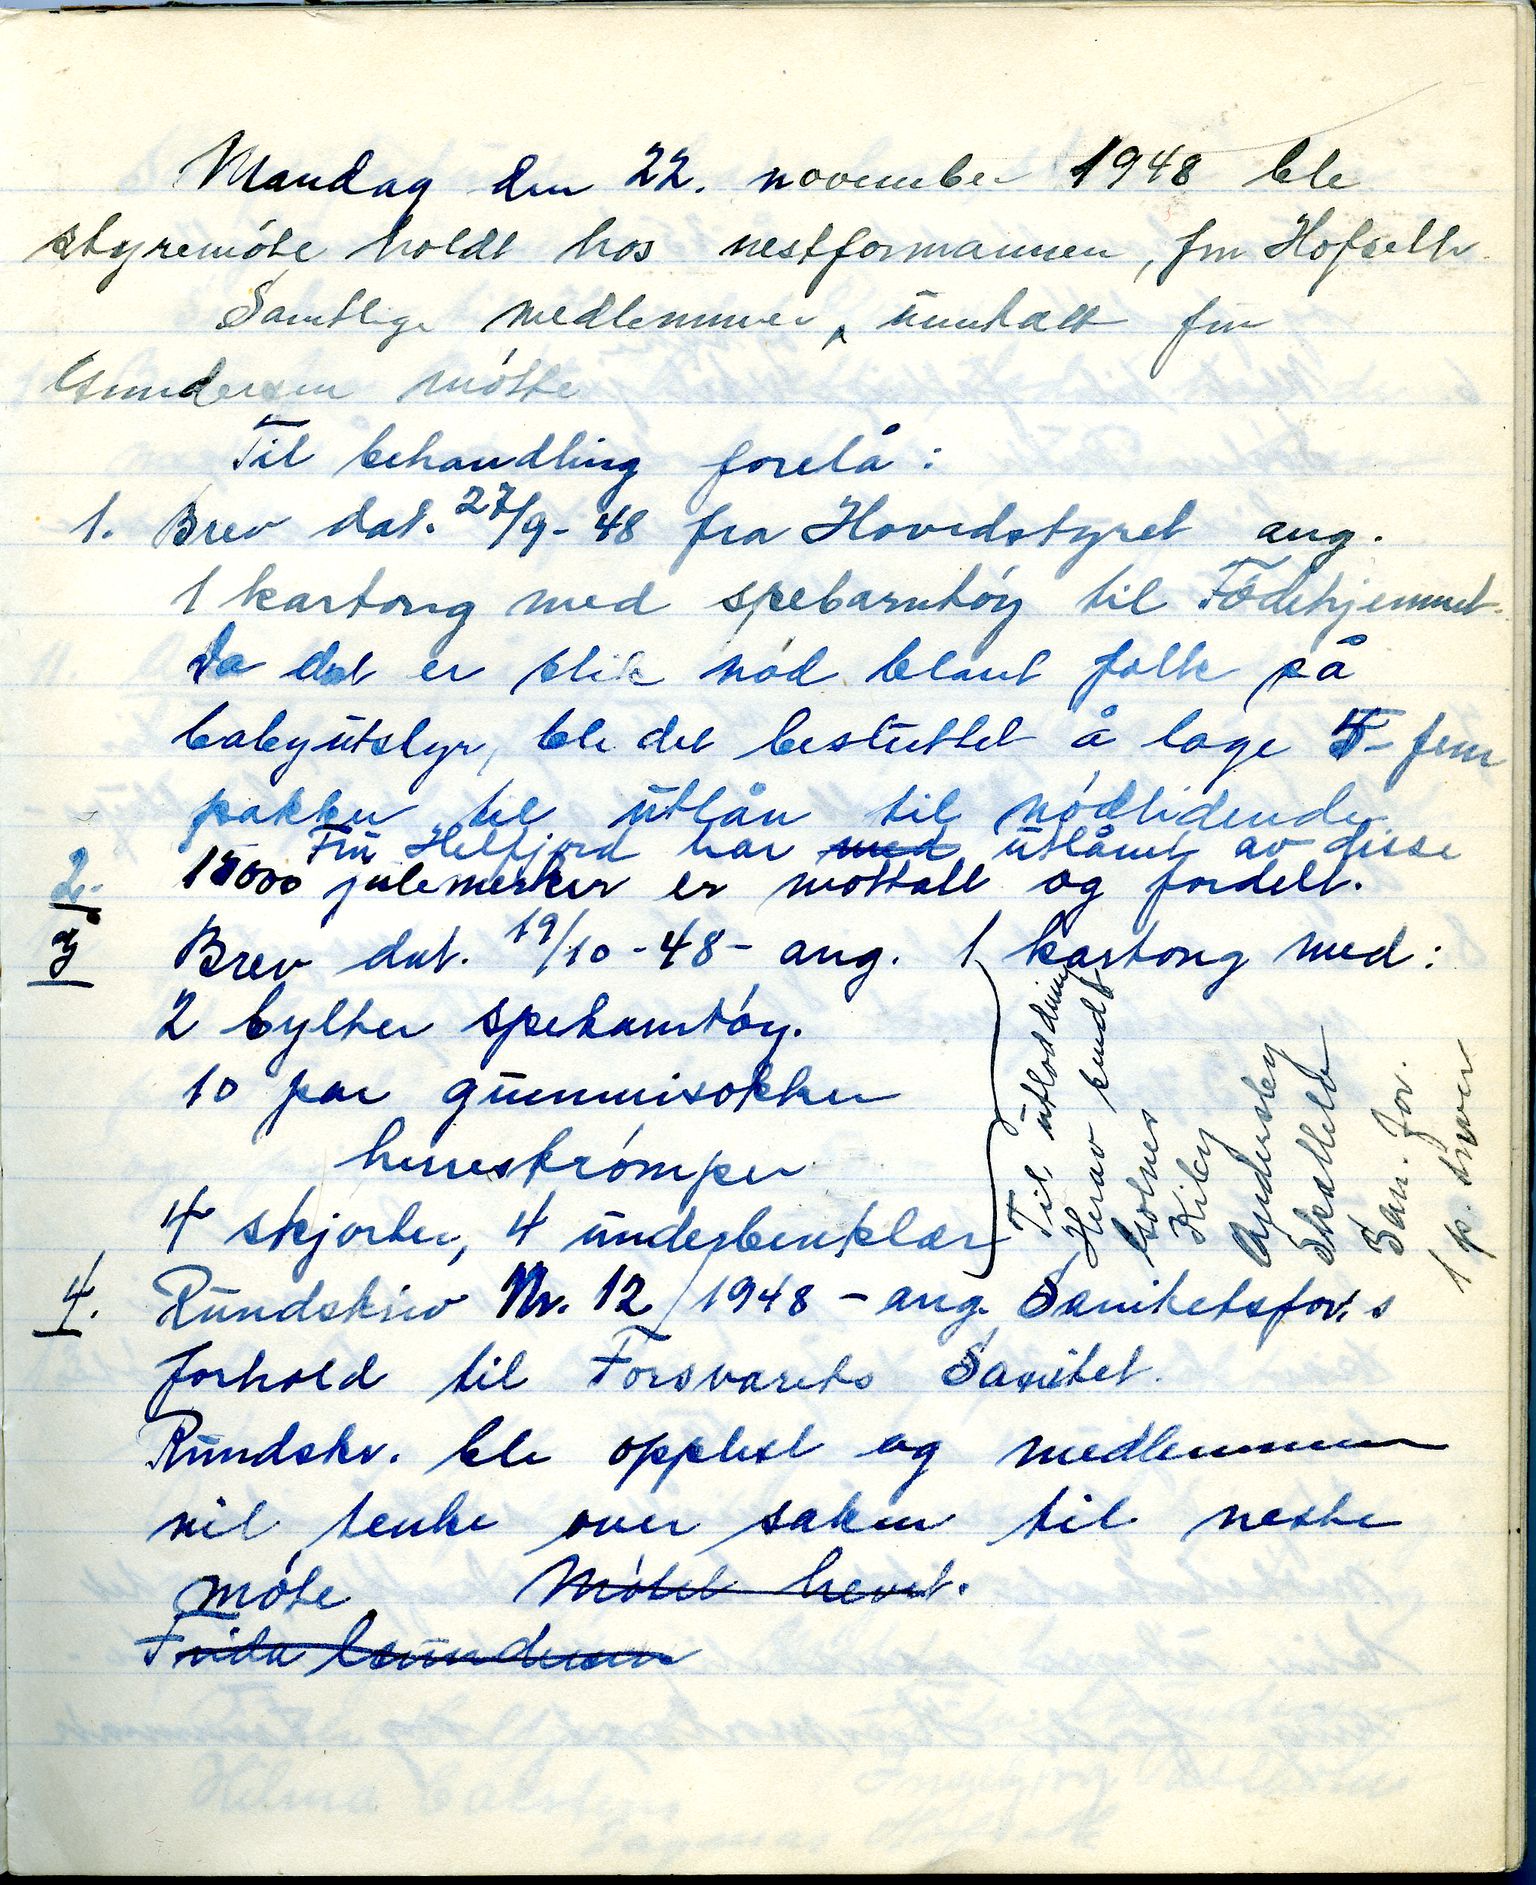 Mandag den 22. november 1948 ble
styremöte holdt hos nestformannen, fru Hofseth.
Samtlige medlemmer, unntatt fru
Gundersen mötte
Til behandling forelå:
1. Brev dat. 27/9-48 fra Hovedstyret ang.
1 kartong med spebarntöy til Födehjemmet.
Da det er slik nöd blant folk på
babyutstyr, ble det besluttet å lage 5- fem
pakker til utlån til nödlidende.
Fru Helfjord har med utlånt av disse
2. 15000 julemerker er mottatt og fordelt.
3 Brev dat. 19/10-48- ang. 1 kartong med:
2 bylter spebarntöy.
10 par gummisokker
herreströmper
4 skjorter, 4 underbenklær
Til utlodding
Herav sendt
Golnes
Kiby
Andersby
Skallelv
San. for.
1 p. til hver
4. Rundskriv Nr. 12/1948 - ang. Sanitetsfor.s
forhold til Forsvarets Sanitet.
Rundskr. ble opplest og medlemmene
vil tenke over saken til neste
möte. Mötet hevet.
Frida Gundersen